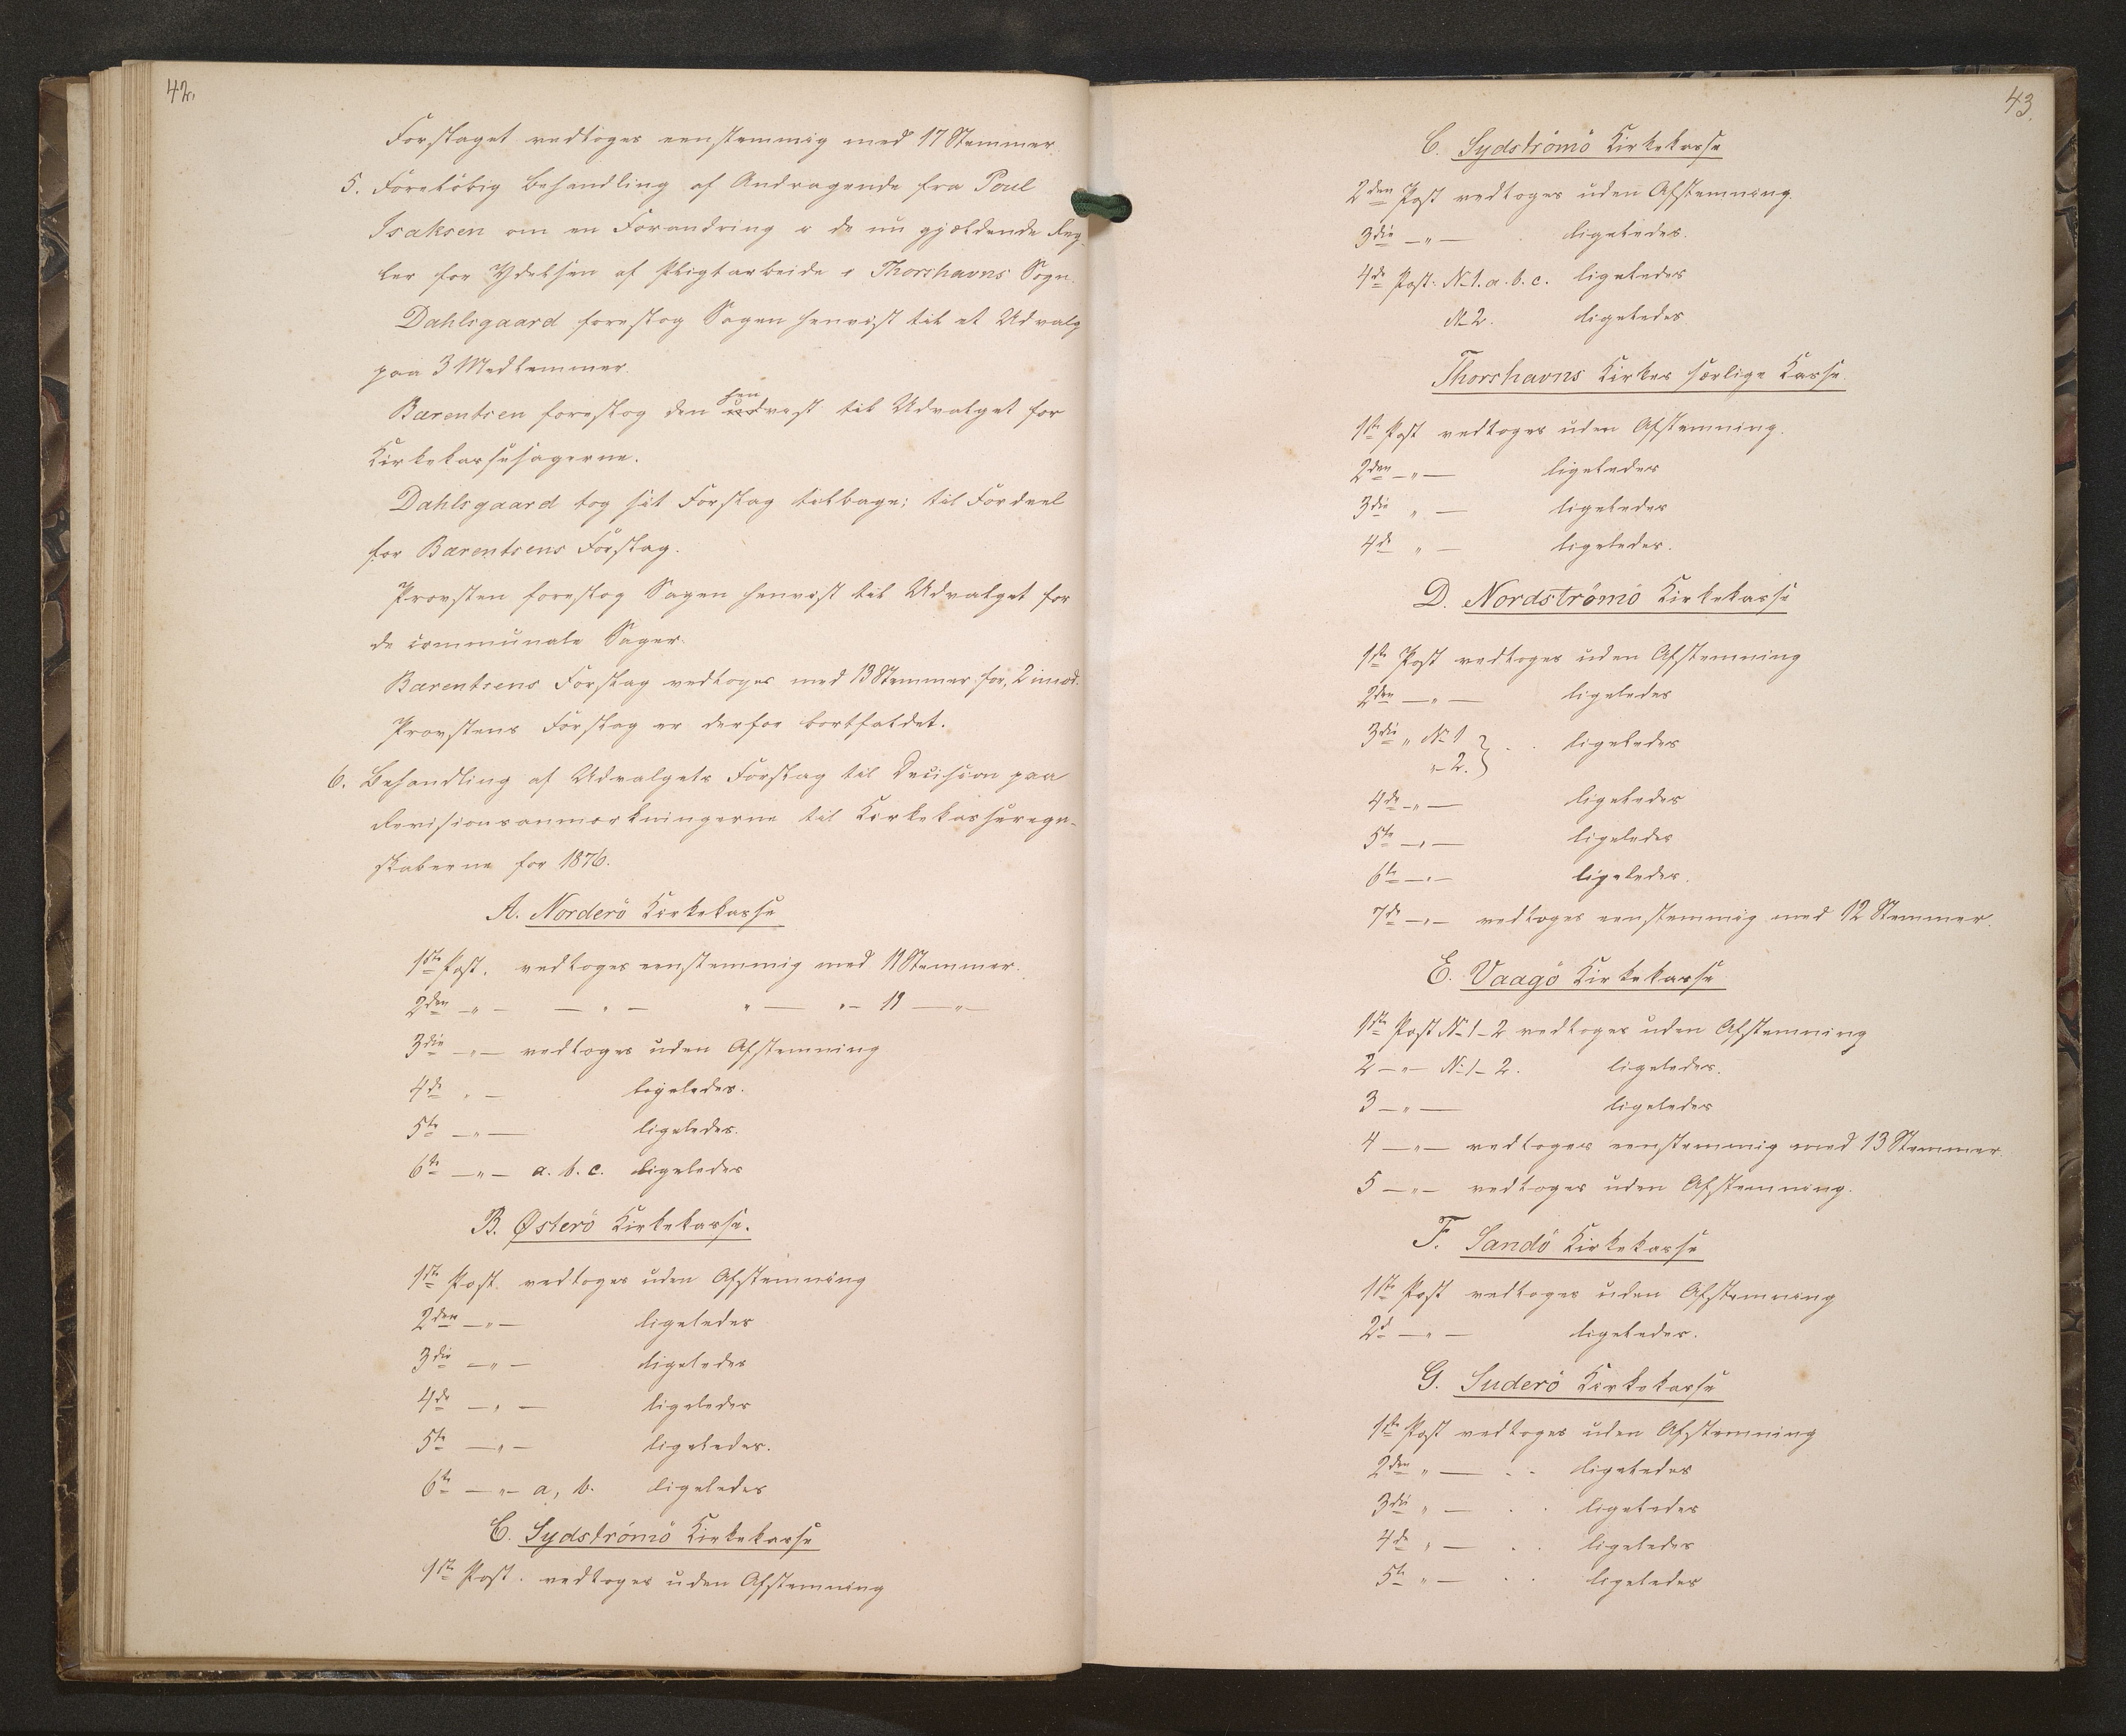 42.
Forslaget vedtoges eenstemmig med 17 Stemmer.
5. Foreløbig Behandling af Andragende fra Poul
Isaksen om en Forandring i de nu gjældende Reg-
ler for Ydelsen af Pligtarbeide i Thorshavns Sogn.
Dahlsgaard foreslog Sagen henvist til et Udvalg
paa 3 Medlemmer.
hen
Bærentsen foreslog den udvist til Udvalget for
Kirkekassesagerne.
Dahlsgaard tog sit Forslag tilbage; til Fordeel
for Bærentsens Forslag.
Provsten foreslog Sagen henvist til Udvalget for
de communale Sager.
Bærentsens Forslag vedtoges med 13 Stemmer for, 2 imod.
Provstens Forslag er derfor bortfaldet.
6. Behandling af Udvalgets Forslag til Decision paa
Revisionsanmærkningerne til Kirkekasseregn-
skaberne for 1876.
A. Norderö Kirkekasse
1ste Post. vedtoges eenstemmig med 11 Stemmer.
2den —„— — „ — „ — „— 11 —„—
3die —„— vedtoges uden Afstemning
4de „ — ligeledes.
5te —„— ligeledes.
6te —„— a. b. c. ligeledes
B. Østerö Kirkekasse.
1ste Post. vedtoges uden Afstemning
2den —„— ligeledes
3die —„— ligeledes
4de —„— ligeledes
5te —„— ligeledes.
6te —„— a, b. ligeledes
C. Sydströmö Kirkekasse
1ste Post. vedtoges uden Afstemning
43.
C. Sydströmö Kirkekasse
2den Post vedtoges uden Afstemning.
3die —„— ligeledes.
4de Post. No 1. a. b. c. ligeledes
No 2. ligeledes
Thorshavns Kirkes særlige Kasse
1ste Post vedtoges uden Afstemning.
2den —„— ligeledes
3die „ — ligeledes
4de „ — ligeledes.
D. Nordströmö Kirkekasse
1ste Post vedtoges uden Afstemning
2den —„— ligeledes
3die „ No 1 } . . ligeledes
„ — 2.
4de —„— ligeledes
5te —„— ligeledes
6te —„— ligeledes.
7de —„— vedtoges eenstemmig med 12 Stemmer.
E. Vaagö Kirkekasse
1ste Post No 1 — 2 vedtoges uden Afstemning
2 —„— No 1 — 2. ligeledes.
3 —„— ligeledes
4 —„— vedtoges eenstemmig med 13 Stemmer.
5 —„— vedtoges uden Afstemning.
F. Sandö Kirkekasse
1ste Post vedtoges uden Afstemning
2d —„— ligeledes.
G. Suderö Kirkekasse
1ste Post vedtoges uden Afstemning
2den „ — . . ligeledes
3die „ — . . ligeledes
4de „ — . . ligeledes
5te „ — . . ligeledes